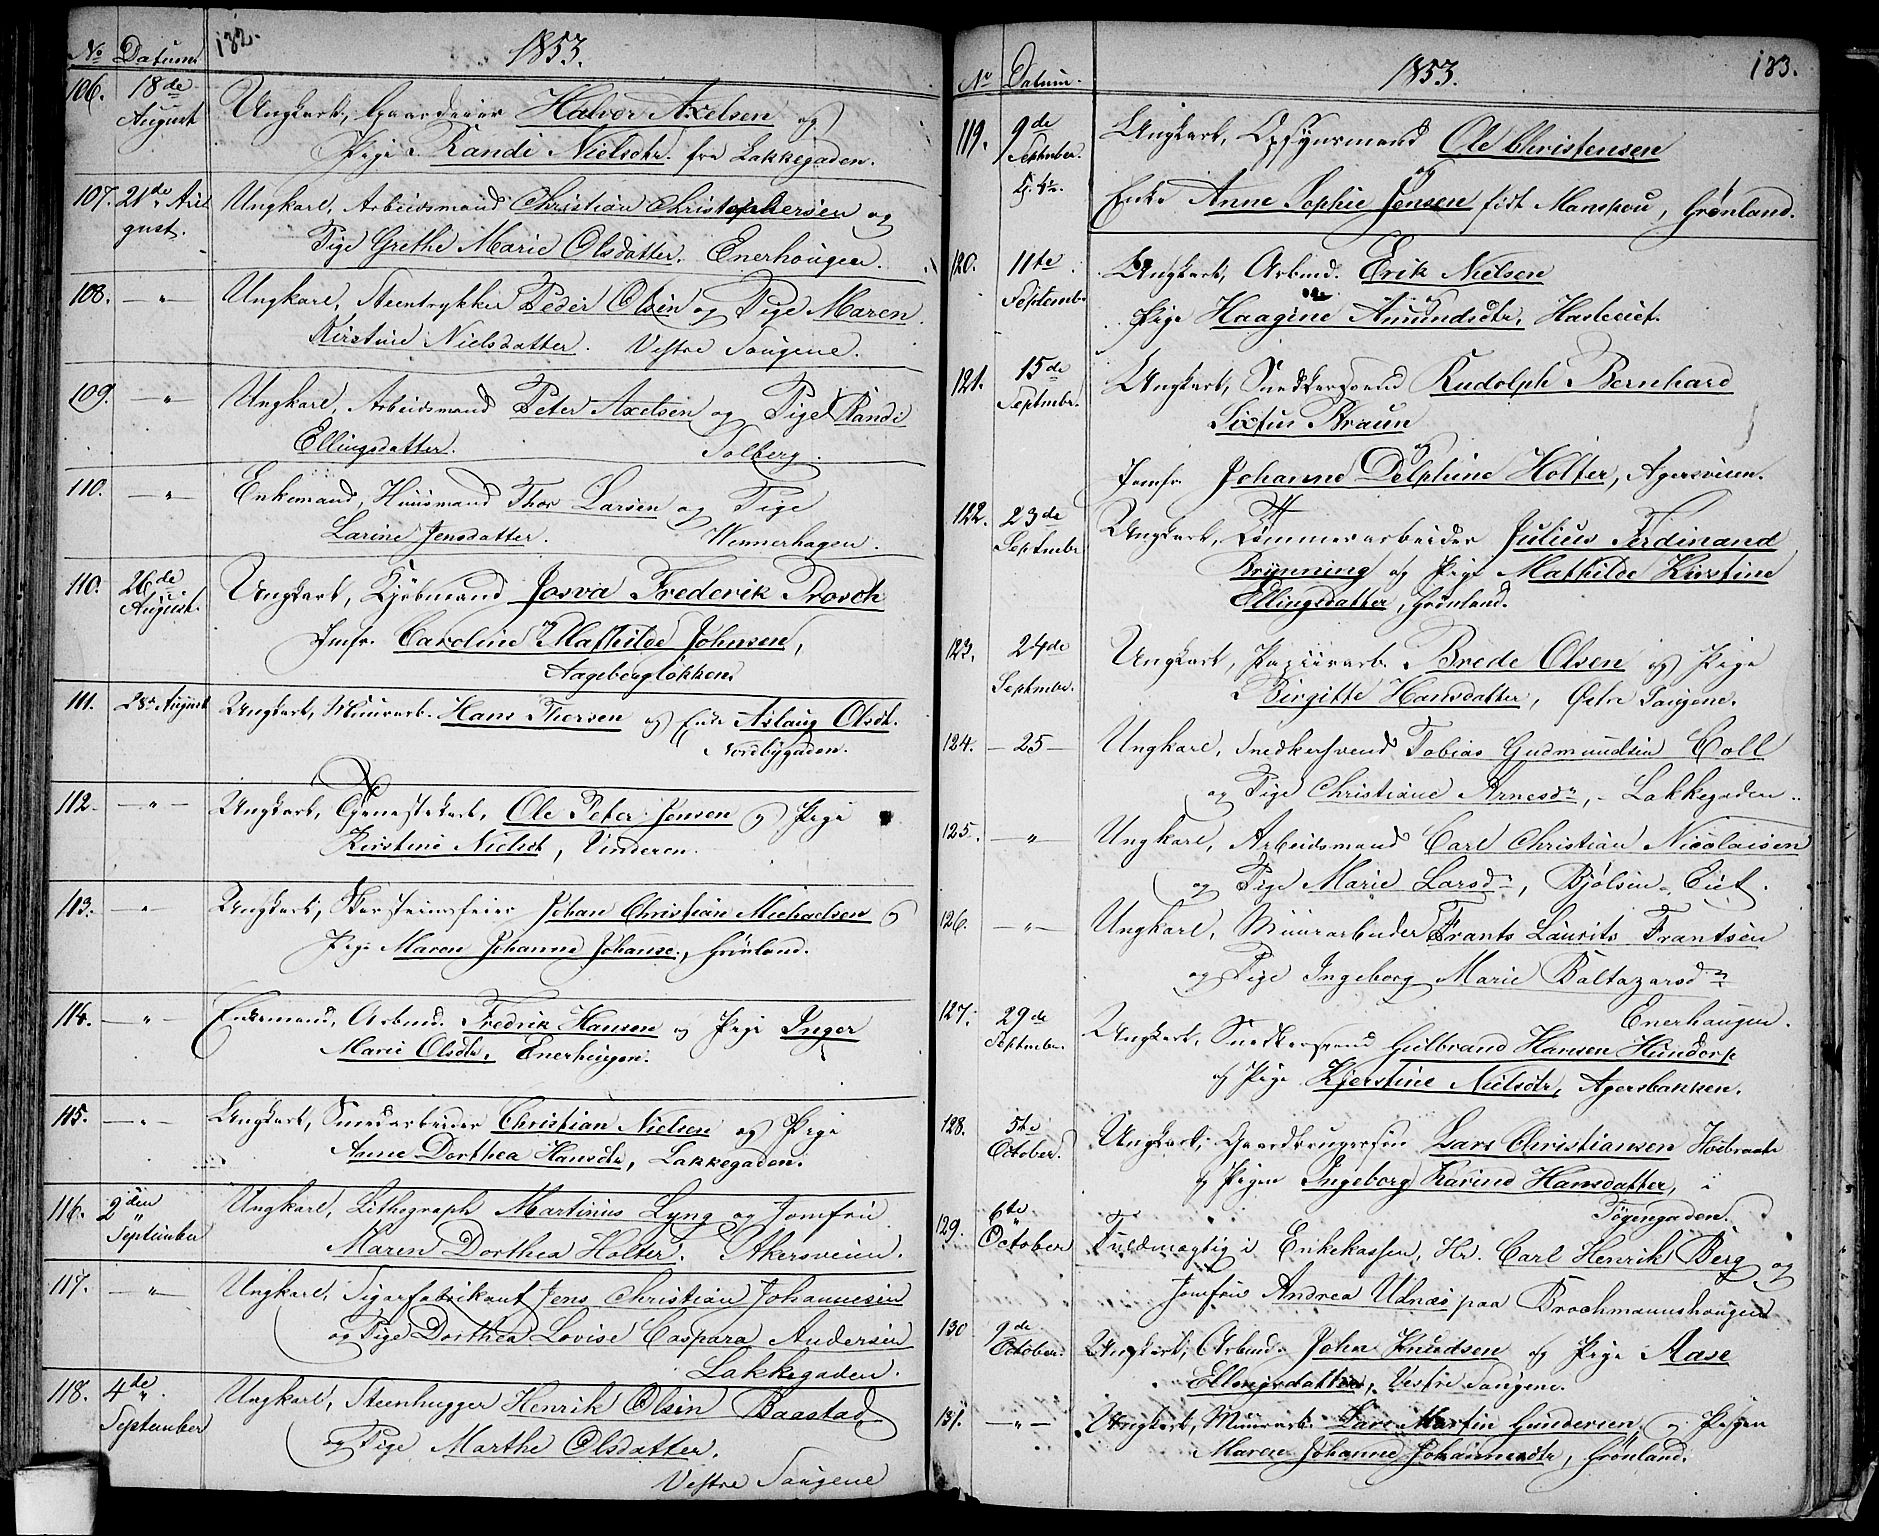 No Datum 132. 1853.
106. 18de August Ungkarl, Gaardeier Halvor Axelsen og
Pige Randi Nielsdtr. fra Lakkegaden.
107. 21de August. Ungkarl, Arbeidsmand Christian Christophersen og
Pige Grethe Marie Olsdatter. Enerhougen.
108. — " — Ungkarl, Steentrykker Peder Olsen og Pige Maren
Kirstine Nielsdatter. Vestre Tougene.
109. — " — Ungkarl, Arbeidsmand Peter Axelsen og Pige Randi
Ellingsdatter. Tolberg.
110. — " — Enkemand, Huusmand Thor Larsen og Pige
Larine Jensdatter. Wennerhagen.
110. 26de August. Ungkarl, Kjøbmand Josva Frederik Prosch
og
Jomfr. Caroline Mathilde Johnsen,
Aagebergløkken.
111. 28de August Ungkarl, Muurarb. Hans Thersen og Enke Aslaug Olsdt.
Nordbygaden.
112. — " — Ungkarl, Ole Peter Jensen og Pige
Kirstine Nielsdt, Vinderen.
113. — " — Ungkarl, Skorsteensfeier Johan Christian Michaelsen og
Pige Maren Johanne Johanse., Grønland.
114. — " — Enkemand, Arbmd. Fredrik Hansen og Pige Inger
Marie Olsdtr, Enerhougen.
115. — " — Ungkarl, Smedarbeider Christian Nielsen og Pige
Anne Dorthea Hansdtr, Lakkegaden.
116. 2den September Ungkarl, Lithograph Martinius Lyng og Jomfru
Maren Dorthea Holter. Akersveien.
117. — " — Ungkarl, Sigarfabrikant Jens Christian Johannesen
og Pige Dorthea Lovise Caspara Andersen
Lakkegaden.
118. 4de September Ungkarl, Steenhugger Henrik Olsen Baastad
og Pige Marthe Olsdatter.
Vestre Tougene
No Datum. 1853. 133.
119. 9de September Ungkarl, Opsynsmand Ole Christensen
og
Enke Anne Sophie Jensen født Manskou, Grønland.
120. 11te September Ungkarl, Arbmd. Erik Nielsen
og
Pige Haagine Amundsdtr, Hasleeiet.
121. 15de Septembr. Ungkarl, Snedkersvend Rudolph Bernhard
Sixtus Braun
og
Jomfr. Johanne Delphine Holter, Agersveien.
122. 23de Septembr Ungkarl, Tømmerarbeider Julius Ferdinand
Brynning og Pige Mathilde Kirstine
Ellingsdatter, Grønland.
123. 24de Septembr. Ungkarl, Papiirarb. Brede Olsen og Pige
Birgitte Hansdatter, Østre Tougene.
124. — 25 — Ungkarl, Snedkersvend Tobias Gudmundsen Coll
og Pige Christiane Arnesdr, – Lakkegaden.
125. — " — Ungkarl, Arbeidsmand Carl Christian Nicolaisen
og Pige Marie Larsdr, Bjølsen-Eiet.
126. — " — Ungkarl, Muurarbeider Frants Laurits Frantsen
og Pige Ingeborg Marie Baltazarsdr
Enerhaugen.
127. 29de September Ungkarl, Snedkersvend Gulbrand Hansen Hundorp
og Pige Kjerstine Nielsdtr, Agersbakken.
128. 5te October. Ungkarl, Gaardbrugersøn Lars Christiansen Høibraate
og Pigen Ingeborg Karine Hansdatter, i
Tøiengaden.
129. 6te October Fuldmægtig i Enkekassen, Hr. Carl Henrik Berg og
Jomfru Andrea Udnæs paa Brochmannshougen
130 9de October. Ungkarl, Arbmd. John Knudsen og Pige Aase
Ellingsdatter, Vestre Tougene.
131. — " — Ungkarl, Muurarb. Lars Martin Gundersen, og Pigen
Maren Johanne Johannesdtr, Grønland.